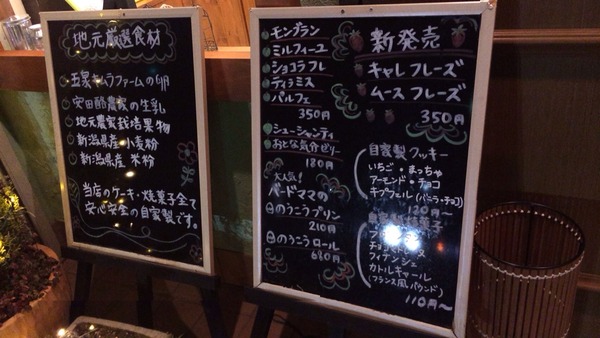 地元厳選食材
五泉キムラファームの卵
安田酪農家の生乳
地元農家栽培果物
新潟県産小麦粉
新潟県産米粉
当店のケーキ・焼菓子全て
安心安全の自家製です。
モンブラン
ミルフィーユ
ショコラフレ
ティラミス
パルフェ
350円
シューシャンティ
おとな気分ゼリー
180円
大人気!
バードママの
のうこうプリン
210円
のうこうロール
680円
新発売
キャレフレーズ
ムースフレーズ
350円
自家製クッキー
いちご・まっちゃ
アーモンド・チョコ
キプフェル(バニラ・チョコ)
120円〜
自家製 菓子
フィナンシェ
カトルキャール
(フランス風パウンド)
110円〜